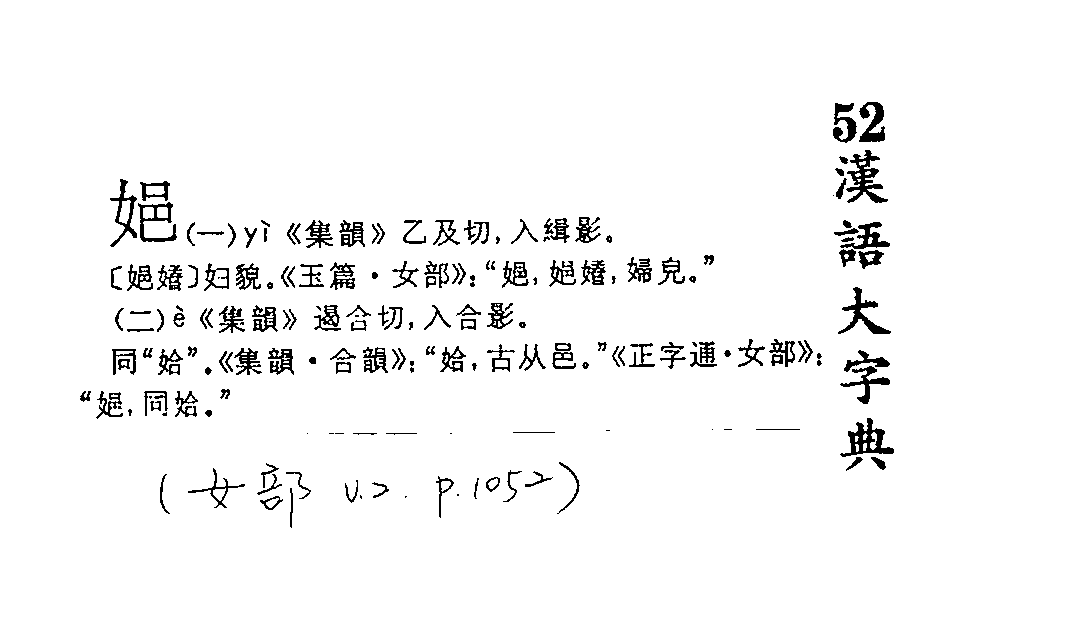 㛕(一)yì《集韻》乙及切,入緝影。
〔㛕〕妇貌。《玉篇·女部》:“㛕,㛕,婦皃。”
(二)è《集韻》遏合切,入合影。
同“姶”。《集韻·合韻》:“姶,古从邑。”《正字通·女部》:
“㛕,同姶。”
(女部 v.2. p.1052)
52漢語大字典